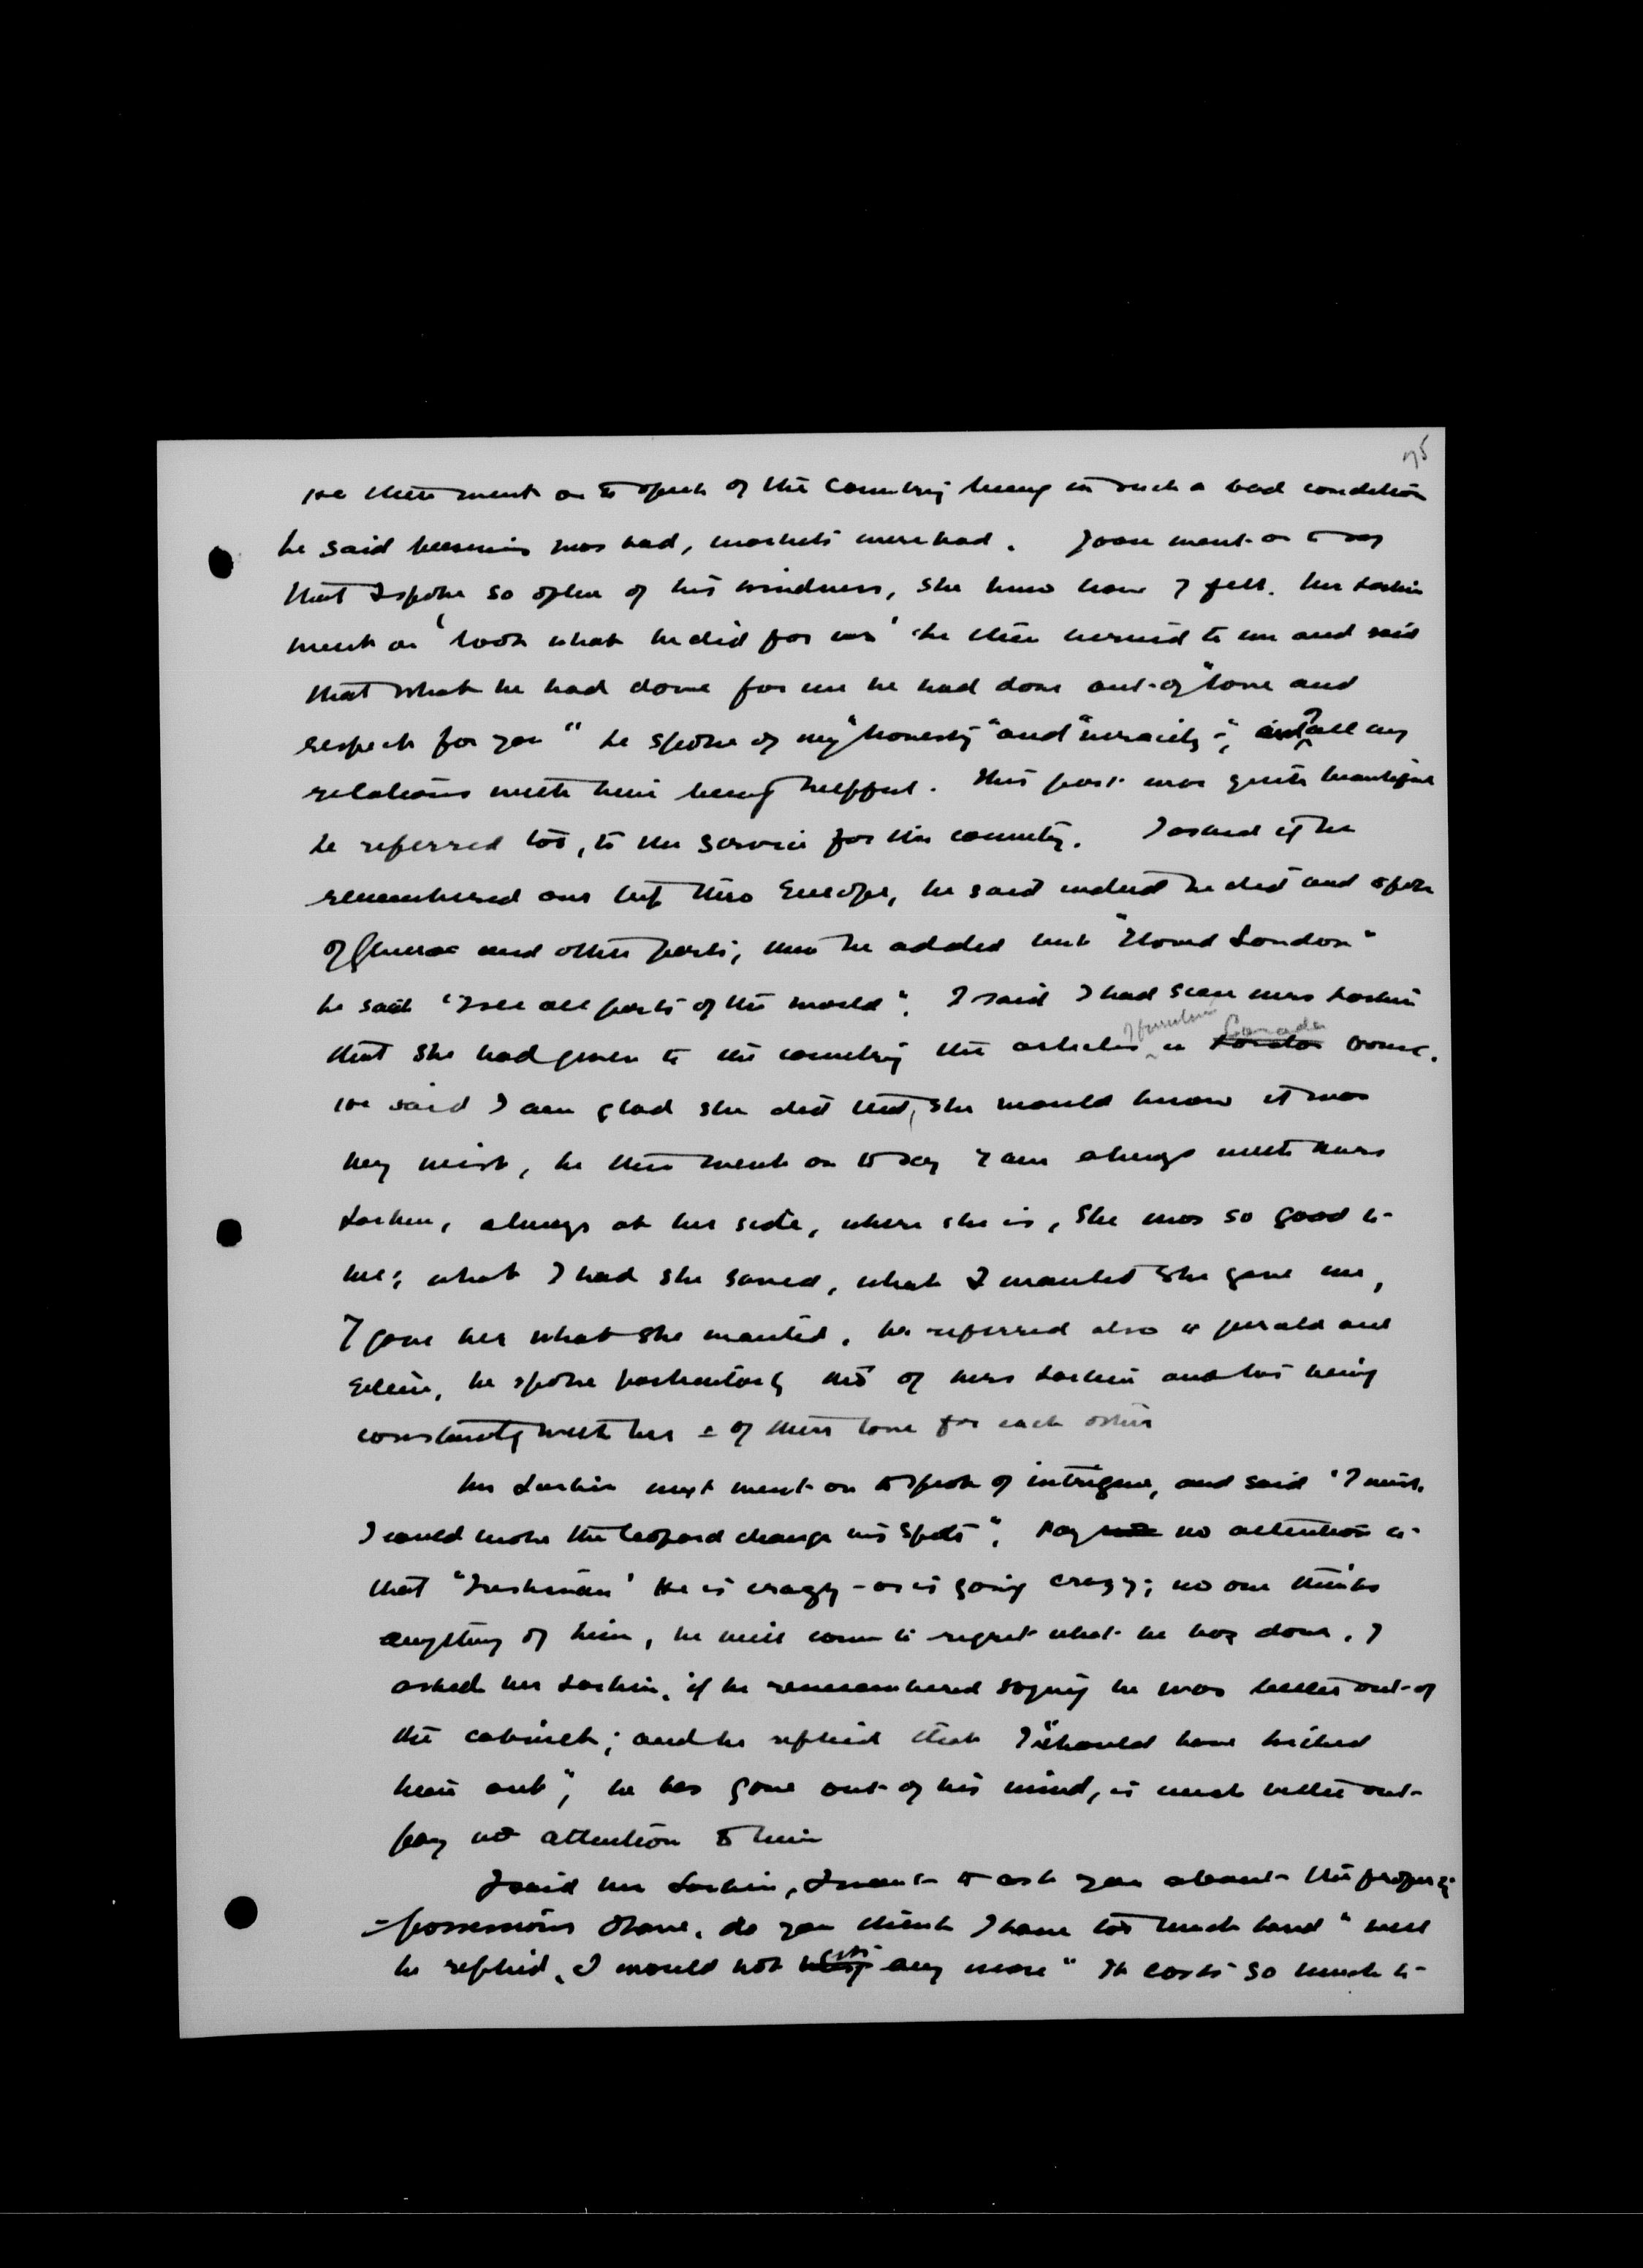 75
He then went on to speak of the country being in such a bad condition
he said business was bad, markets were bad. Joan went on to say
that I spoke so often of his kindness, she knew how I felt. Mr Larkin
went on 'look what he did for me' he then turned to me and said
that what he had done for me he had done out of "love and
respect for you" he spoke of my "honesty" and "veracity", all my
relations with him being helpful. This part was quite beautiful
he referred too, to the service for the country. I asked if he
remembered our trip thro Europe, he said indeed he did and spoke
of and other parts, then he added but "I loved London"
he said "I see all parts of the world". I said I had seen Mrs Larkin
that she had given to the country the articles of furniture in London Canada House.
He said I am glad she did that, she would know it was
my wish, he then went on to say I am always with Mrs
Larkin, always at her side, where she is, she was so good to
me; what I had she saved, what I wanted she gave me,
I gave her what she wanted. he referred also to Gerald and
he spoke particularly tho of Mrs Larkin and his being
constantly with her & of their love for each other
Mr Larkin next went on to speak of intrigue, and said "I wish
I could make the leopard change his spots". Pay no attention to
that "Irishman" He is crazy - or is going crazy; no one thinks
anything of him, he will come to regret what he has done. I
asked Mr Larkin, if he remembered saying he was better out of
the cabinet; and he replied that I "should have kicked
him out", he has gone out of his mind, is much better out
pay no attention to him
I said Mr Larkin, I want to ask you about the property
- possessions I have. do you think I have too much land "well
he replied, I would not any more" It costs so much to